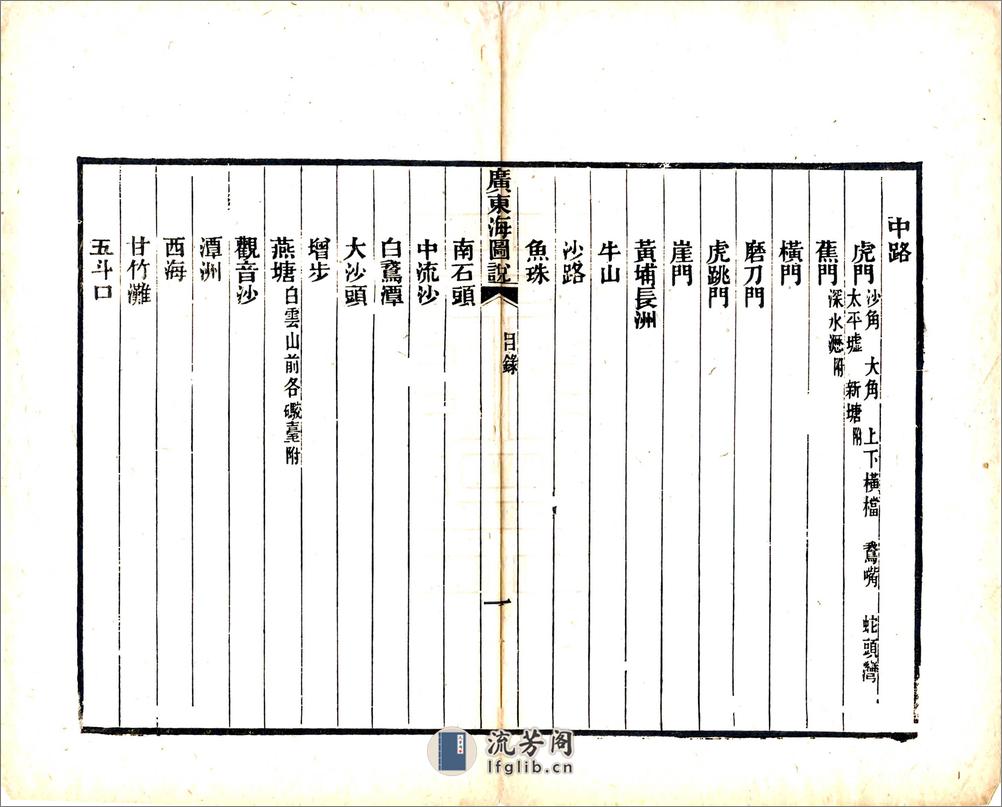 中路
虎門 沙角 大角 上下橫檔 鵞嘴 蛇頭灣 太平墟 新塘附
蕉門 深水瀝附
橫門
磨刀門
虎跳門
崖門
黃埔長洲
牛山
沙路
魚珠
廣東海圖說 目錄 一
南石頭
中流沙
白鵞潭
大沙頭
增步
燕塘 白雲山前各礮臺附
觀音沙
潭洲
西海
甘竹灘
五斗口
流芳阁
lfglib.cn